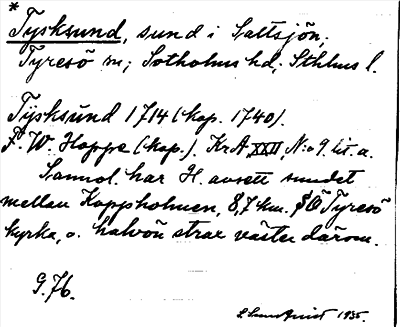 *
Tysksund, sund i Saltsjön;
Tyresö sn; Sotholms hd; Sthlms l.
Tÿsksúnd 1714 (kop. 1740).
F. W. Hoppe (kop.). KrA XXII, N:o 9. lit. a.
Sannol. har H. avsett sundet
mellan Koppholmen, 8,7 km. SÖ Tyresö
kyrka, o. halvön strax väster därom.
G. 76.
1935.